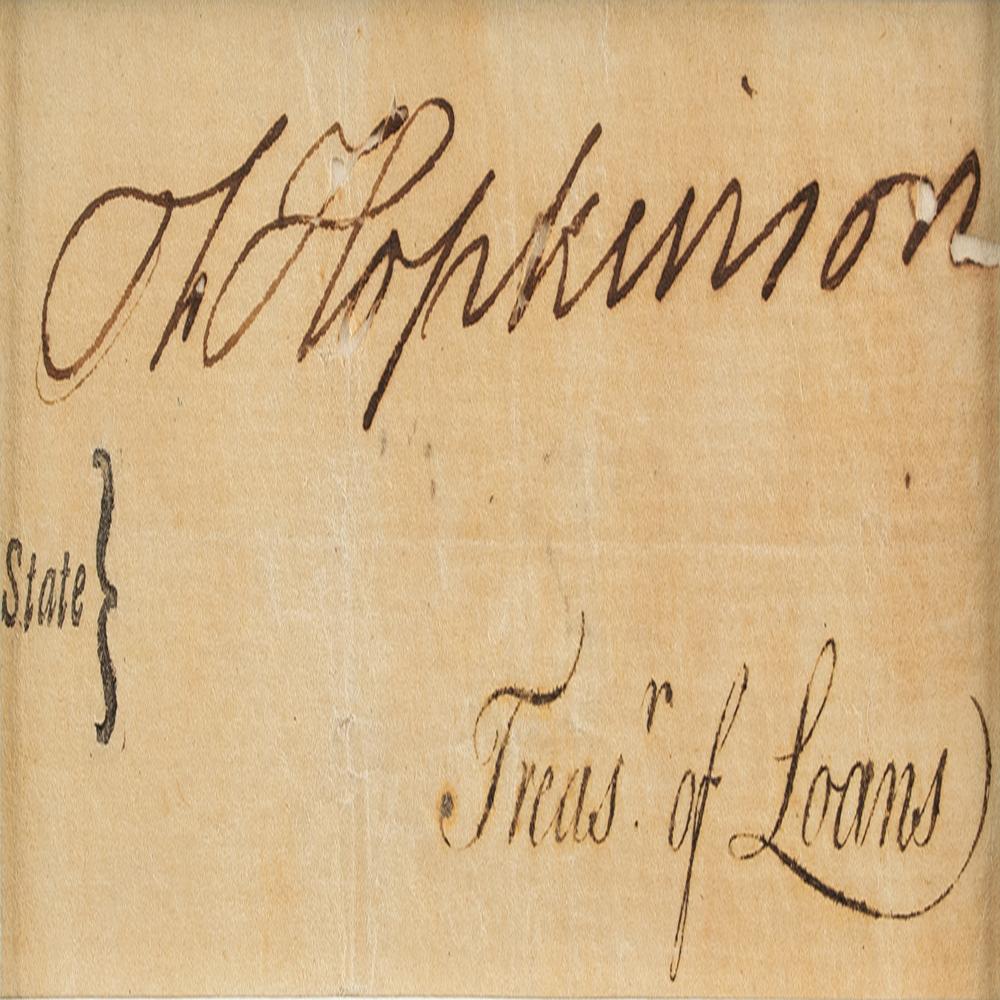 Fs Hopkinson
State }
Treas.r of Loans